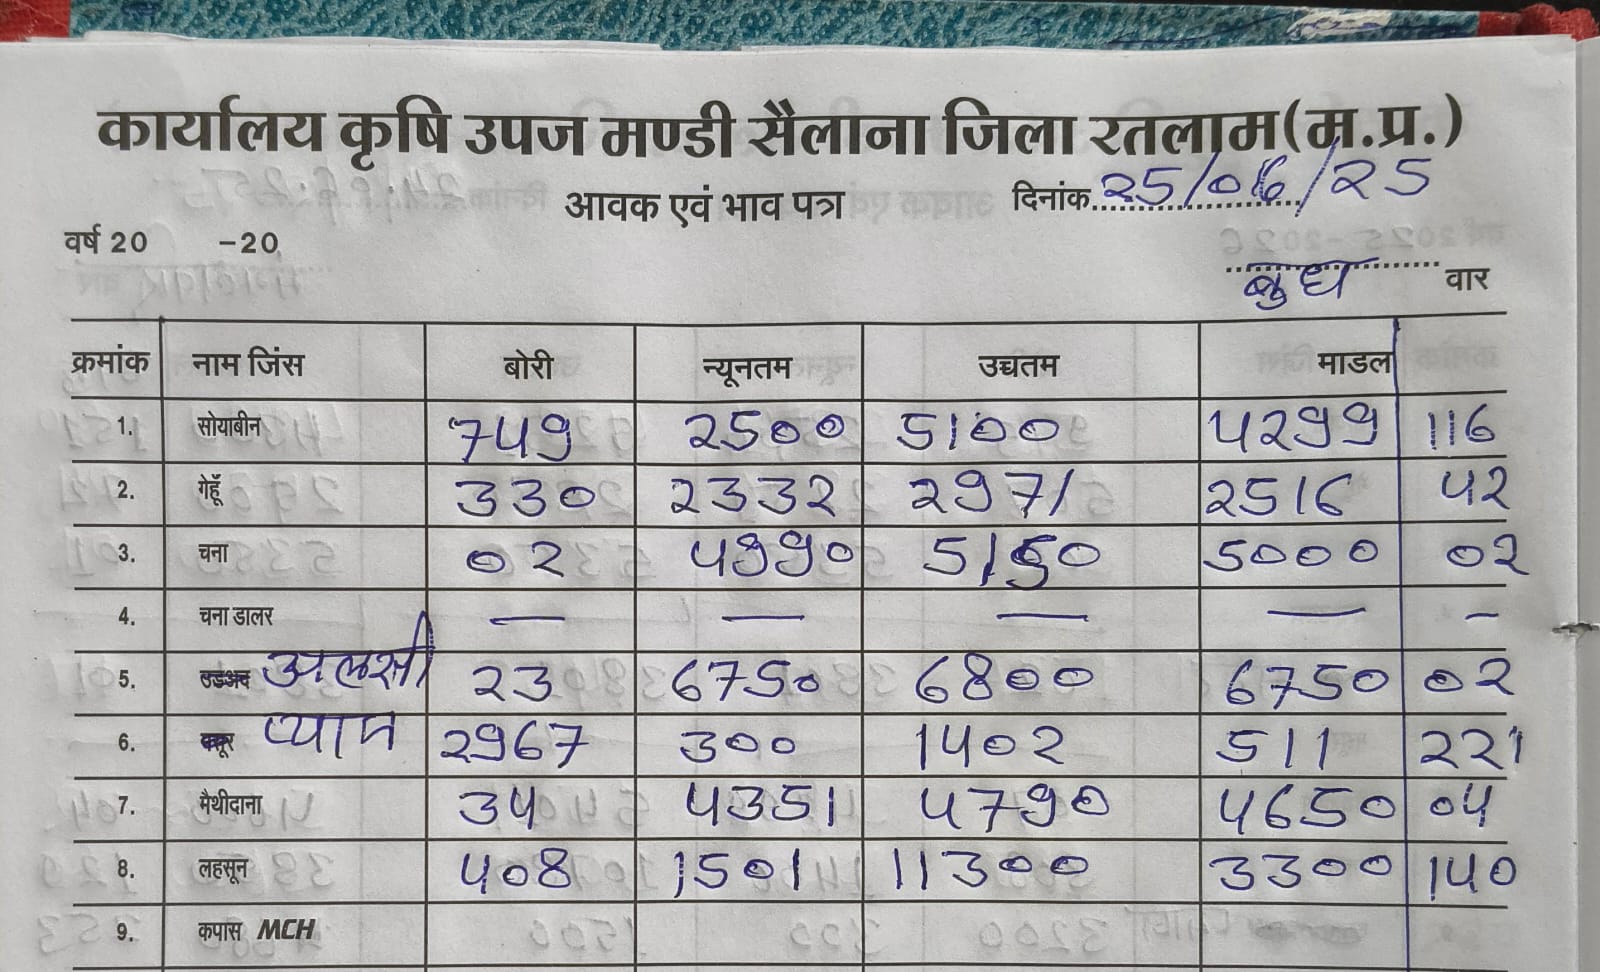 कार्यालय कृषि उपज मण्डी सैलाना जिला रतलाम(म.प्र.)
आवक एवं भाव पत्र दिनांक 25/06/25
वर्ष 20 -20
बुध वार
क्रमांक नाम जिंस बोरी न्यूनतम उच्चतम माडल
1. सोयाबीन 749 2500 5100 4299 116
2. गेहूँ 330 2332 2971 2516 42
3. चना 02 4990 5150 5000 02
4. चना डालर — — — — –
5. अलसी 23 6750 6800 6750 02
6. प्याज 2967 300 1402 511 221
7. मैथीदाना 34 4351 4790 4650 04
8. लहसून 408 1501 11300 3300 140
9. कपास MCH